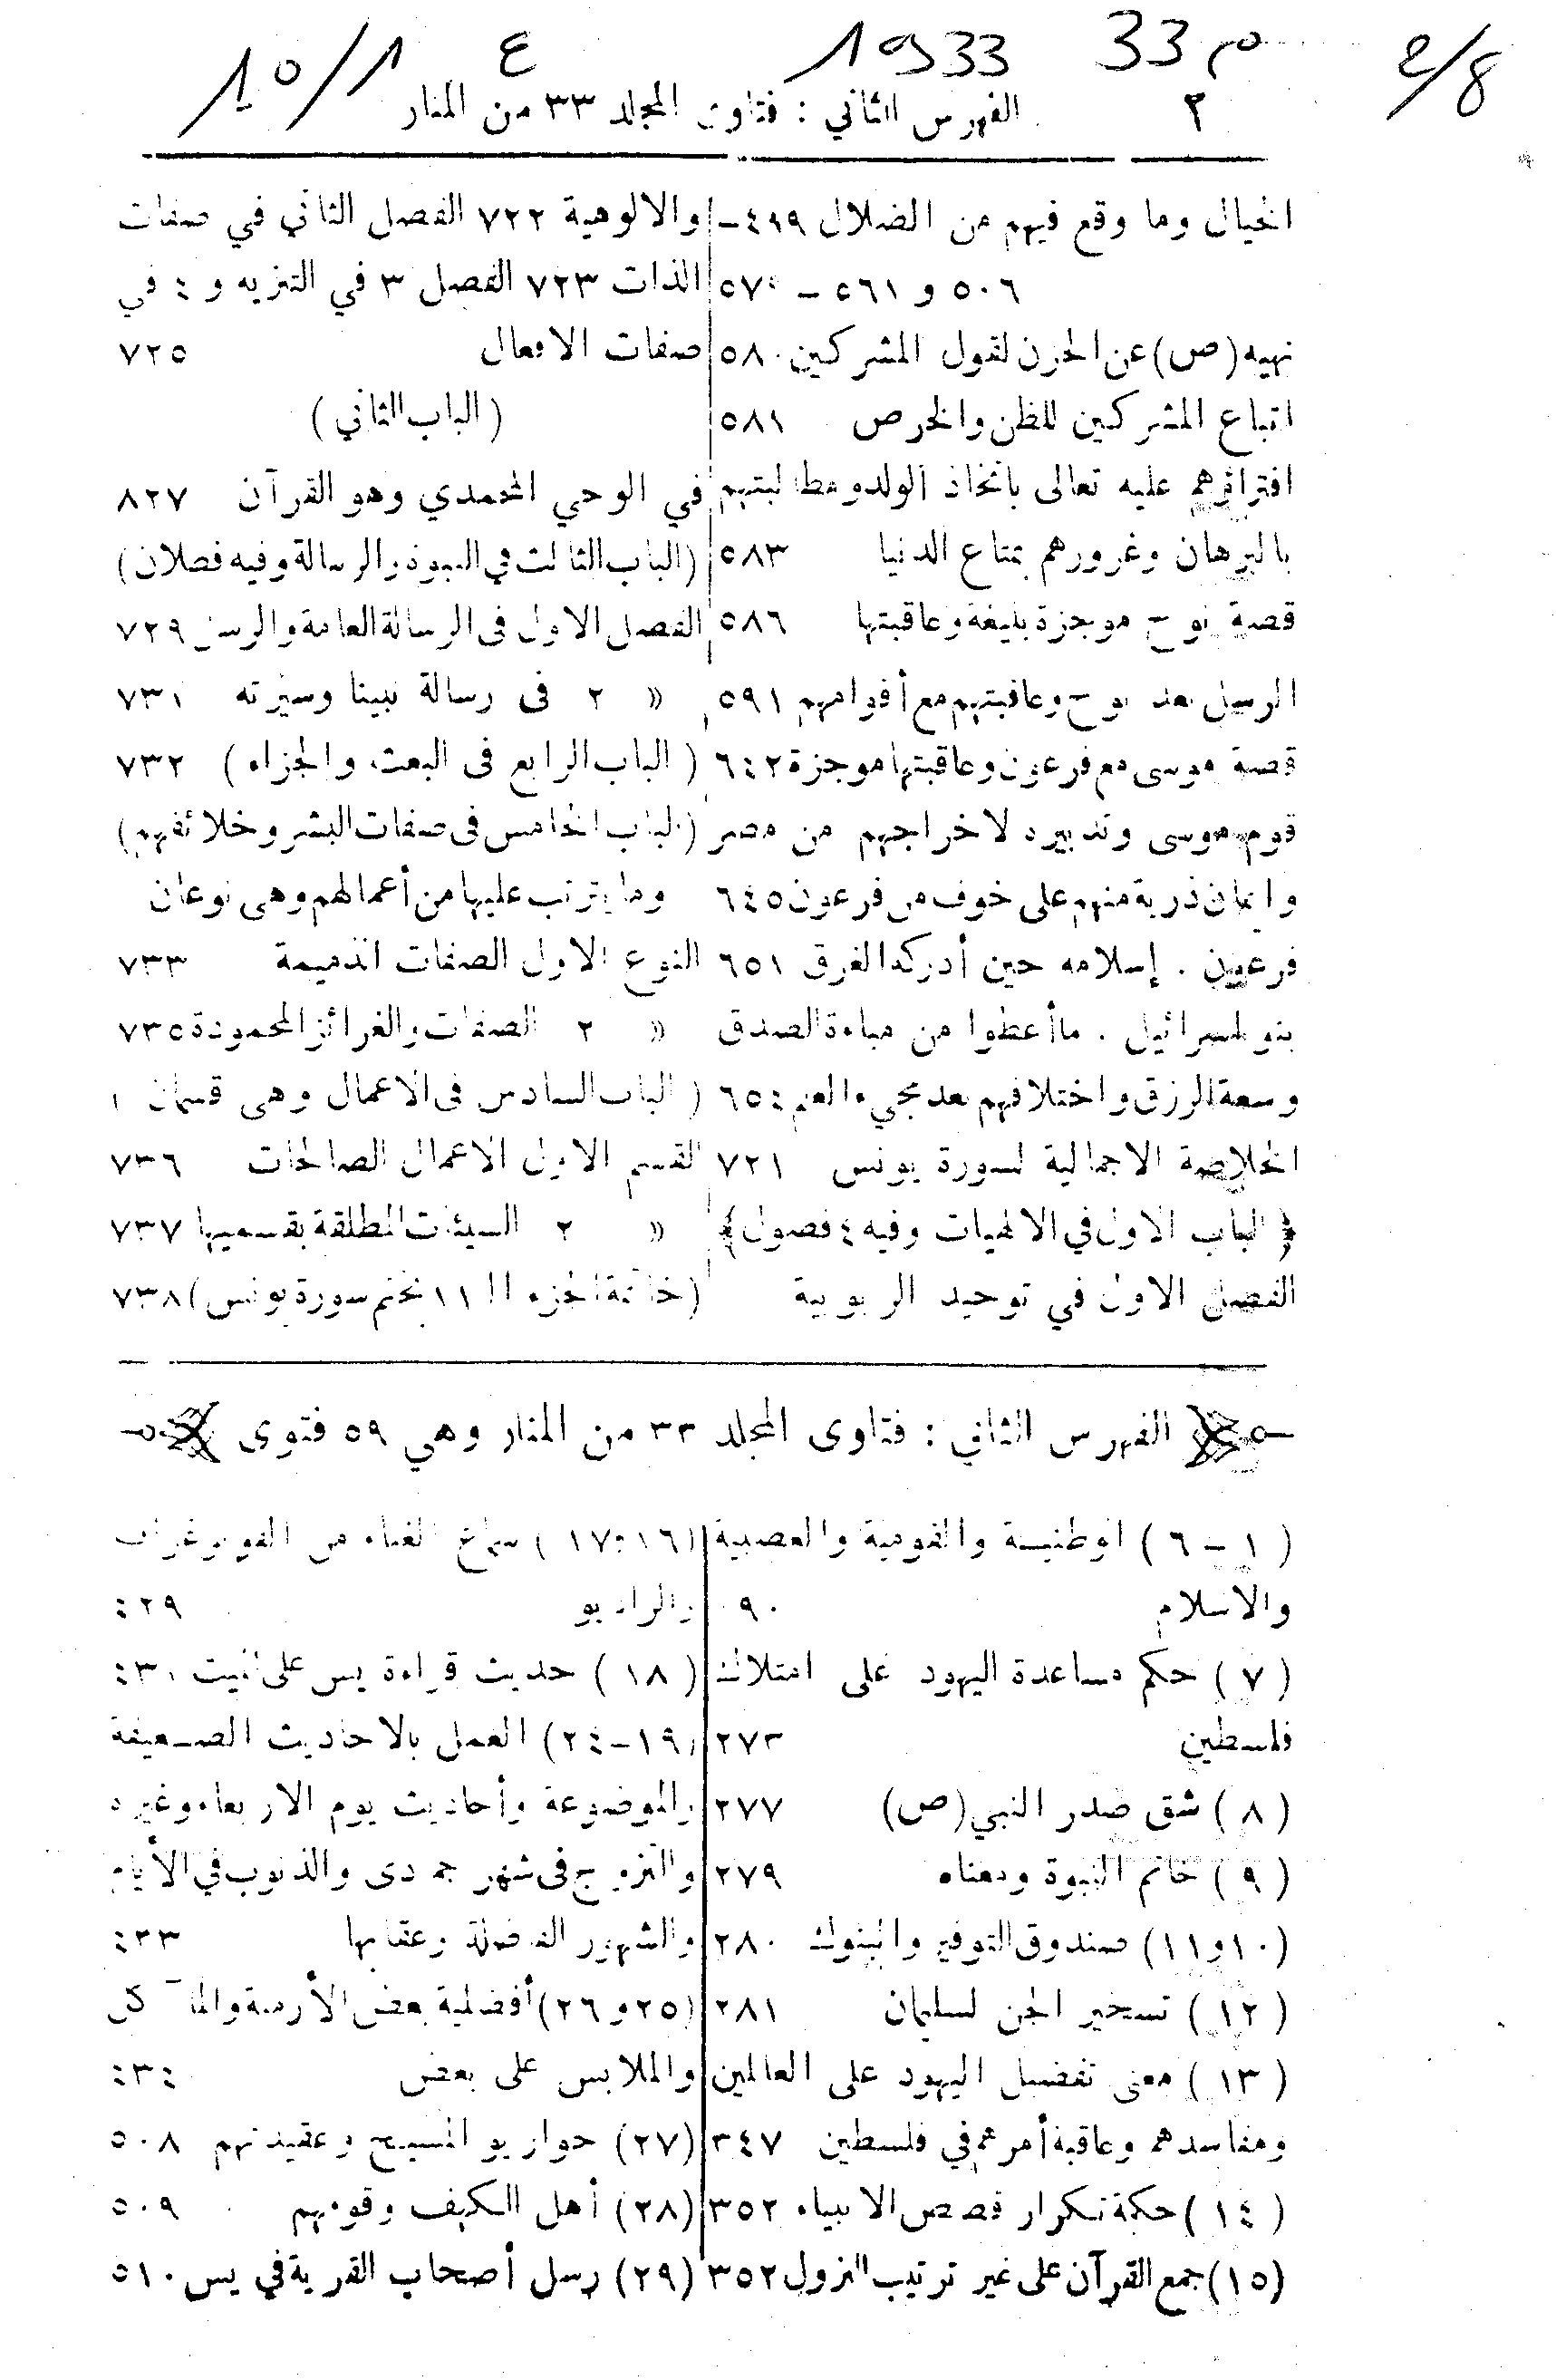 2/8
33 م
1933
ع
10/1
٢
الفهرس الثاني : فتاوى المجلد ٣٣ من المنار
الخيال وما وقع فيهم من الضلال ٤٩٩-
٥٠٦ و ٥٦١ - ٥٧٠
نهيه (ص) عن الحزن لقول المشركين ٥٨٠
اتباع المشركين للظن والخرص ٥٨١
افتراؤهم عليه تعالى باتخاذ الولد ومطالبتهم
بالبرهان وغرورهم بمتاع الدنيا ٥٨٣
قصة نوح موجزة بليغة وعاقبتها ٥٨٦
الرسل بعد نوح وعاقبتهم مع أقوامهم ٥٩١
قصة موسى مع فرعون وعاقبتها موجزة ٦٤٢
قوم موسى وتدبيره لاخراجهم من مصر
وايمان ذرية منهم على خوف من فرعون ٦٤٥
فرعون . إسلامه حين أدركه الغرق ٦٥١
بنو اسرائيل . ما أعطوا من مباءة الصدق
وسعة الرزق واختلافهم بعد مجيء العلم ٦٥٤
الخلاصة الاجمالية لسورة يونس ٧٢١
﴿ الباب الاول في الالهيات وفيه ٤ فصول ﴾
الفصل الاول في توحيد الربوبية
والالوهية ٧٢٢ الفصل الثاني في صفات
الذات ٧٢٣ الفصل ٣ في التنزيه و ٤ في
صفات الافعال ٧٢٥
( الباب الثاني )
في الوحي المحمدي وهو القرآن ٨٢٧
(الباب الثالث في النبوة والرسالة وفيه فصلان)
الفصل الاول فى الرسالة العامة والرسل ٧٢٩
» ٢ فى رسالة نبينا وسيرته ٧٣١
( الباب الرابع فى البعث والجزاء ) ٧٣٢
(الباب الخامس فى صفات البشر وخلائقهم)
وما يترتب عليها من أعمالهم وهى نوعان
النوع الاول الصفات الذميمة ٧٣٣
» ٢ الصفات والغرائز المحمودة ٧٣٥
( الباب السادس فى الاعمال وهى قسمان )
القسم الاول الاعمال الصالحات ٧٣٦
» ٢ السيئات المطلقة بقسميها ٧٣٧
(خاتمة الجزء الـ ١١ بختم سورة يونس) ٧٣٨
الفهرس الثاني : فتاوى المجلد ٣٣ من المنار وهي ٥٩ فتوى
( ١ - ٦ ) الوطنية والقومية والعصبية
والاسلام ٩٠
( ٧ ) حكم مساعدة اليهود على امتلاك
فلسطين ٢٧٣
( ٨ ) شق صدر النبي (ص) ٢٧٧
( ٩ ) خاتم النبوة ومعناه ٢٧٩
(١٠ و ١١) صندوق التوفير والبنوك ٢٨٠
( ١٢ ) تسخير الجن لسليمان ٢٨١
( ١٣ ) معنى تفضيل اليهود على العالمين
ومفاسدهم وعاقبة أمرهم في فلسطين ٣٤٧
( ١٤ ) حكمة تكرار قصص الانبياء ٣٥٢
(١٥) جمع القرآن على غير ترتيب النزول ٣٥٢
(١٦ و ١٧ ) سماع الغناء من الفونوغراف
والراديو ٤٢٩
( ١٨ ) حديث قراءة يس على الميت ٤٣٠
(١٩-٢٤) العمل بالاحاديث الضعيفة
والموضوعة وأحاديث يوم الاربعاء وغيره
والتزوج فى شهر جمادى والذنوب في الأيام
والشهور الفاضلة وعقابها ٤٣٣
(٢٥ و ٢٦) أفضلية بعض الأزمنة والمآكل
والملابس على بعض ٤٣٤
(٢٧) حواريو المسيح وعقيدتهم ٥٠٨
(٢٨) أهل الكهف وقومهم ٥٠٩
(٢٩) رسل أصحاب القرية في يس ٥١٠